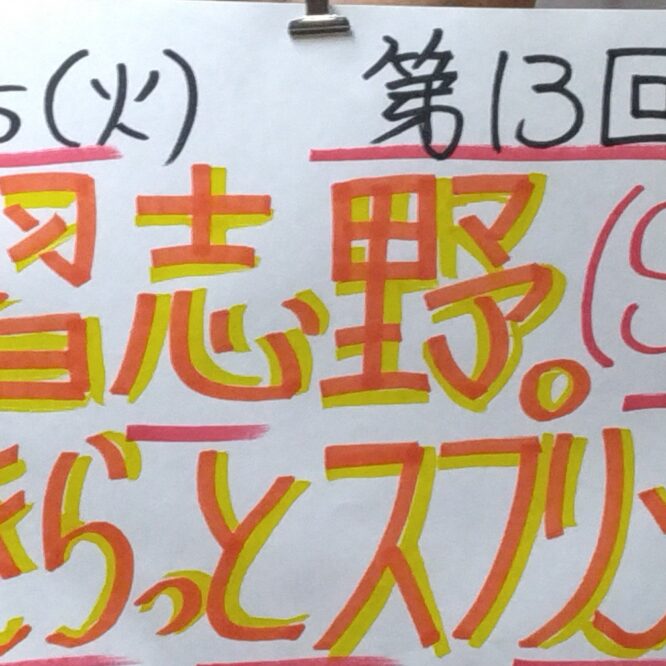 5(火) 第13回
習志野。(S
きらっとスプリン